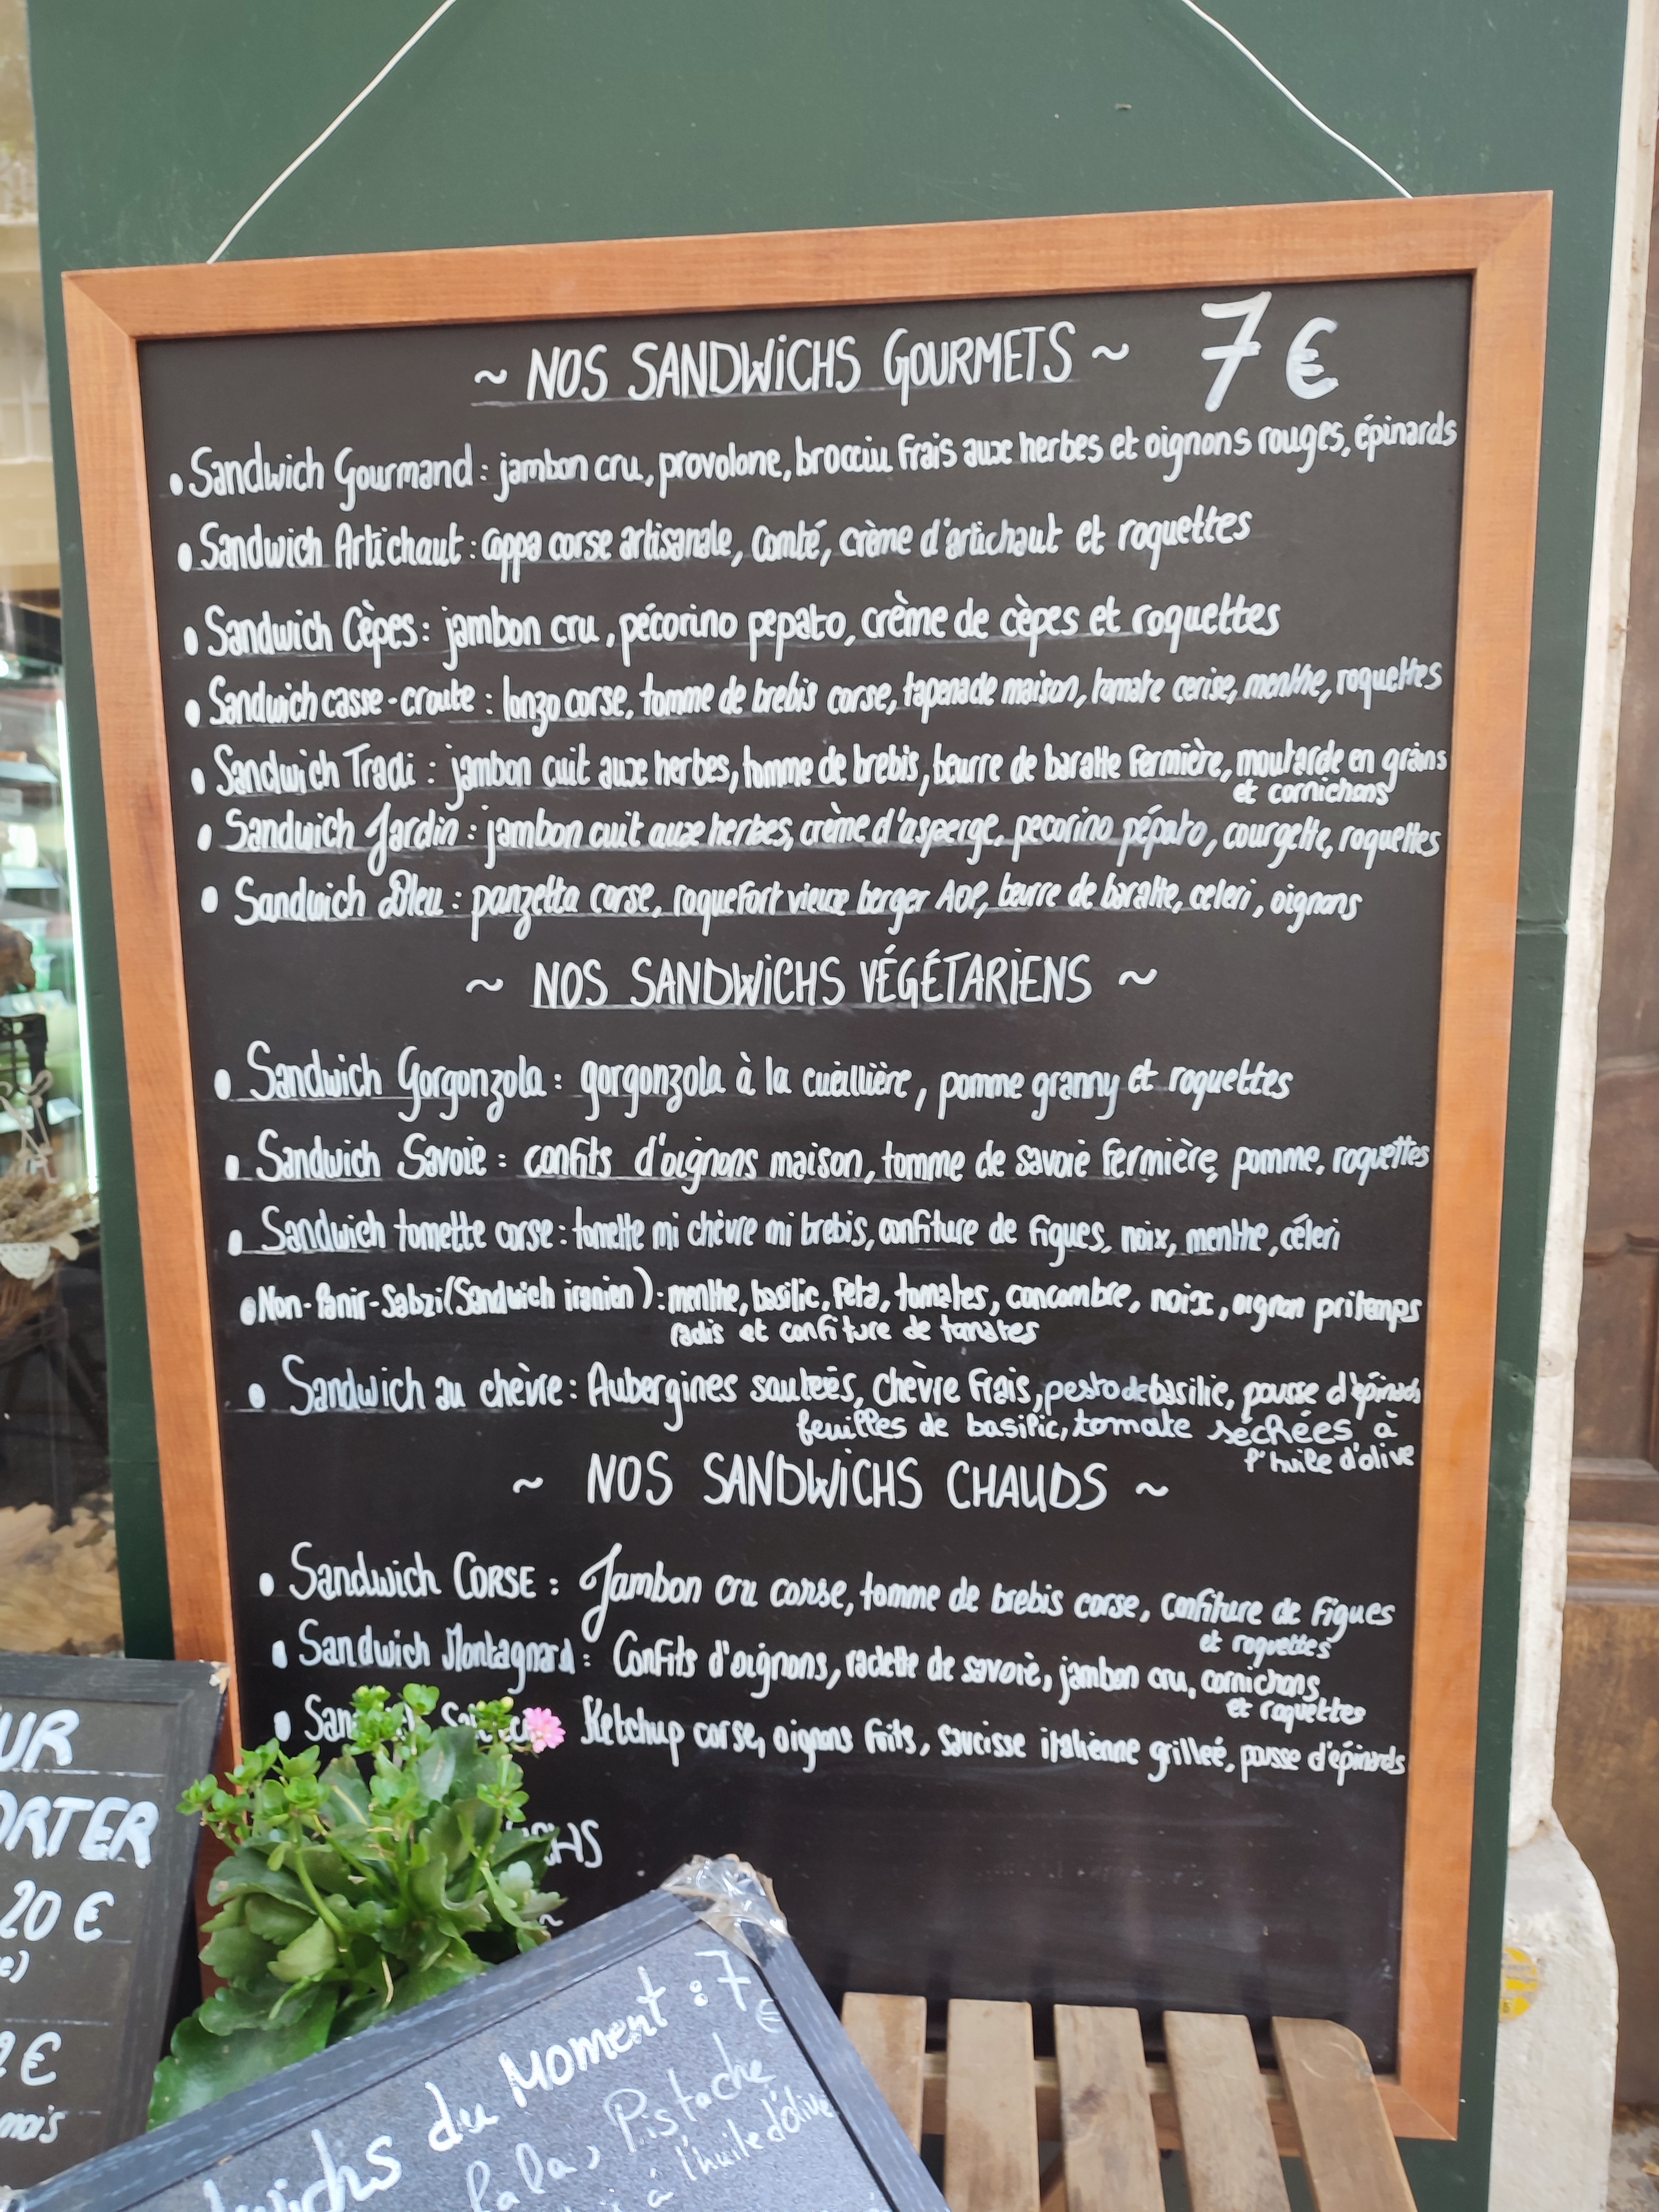 ~ NOS SANDWiCHS GOURMETS ~ 7 €
• Sandwich Gourmand : jambon cru, provolone, brocciu frais aux herbes et oignons rouges, épinards
• Sandwich Artichaut : coppa corse artisanale, Comté, crème d'artichaut et roquettes
• Sandwich Cèpes : jambon cru, pécorino pepato, crème de cèpes et roquettes
• Sandwich casse-croute : lonzo corse, tomme de brebis corse, tapenade maison, tomate cerise, menthe, roquettes
• Sandwich Tradi : jambon cuit aux herbes, tomme de brebis, beurre de baratte fermière, moutarde en grains
et cornichons
• Sandwich Jardin : jambon cuit aux herbes, crème d'asperge, pecorino pépato, courgette, roquettes
• Sandwich Bleu : panzetta corse, roquefort vieux berger AOP, beurre de baratte, celeri, oignons
~ NOS SANDWiCHS VÉGÉTARiENS ~
• Sandwich Gorgonzola : gorgonzola à la cueillière, pomme granny et roquettes
• Sandwich Savoie : confits d'oignons maison, tomme de savoie fermière, pomme, roquettes
• Sandwich tomette corse : tomette mi chèvre mi brebis, confiture de figues, noix, menthe, céleri
• Non-Panir-Sabzi (Sandwich iranien) : menthe, basilic, feta, tomates, concombre, noix, oignon pritemps
radis et confiture de tomates
• Sandwich au chèvre : Aubergines sauteés, chèvre frais, pesto de basilic, pousse d'épinards
feuilles de basilic, tomate séchées à
l'huile d'olive
~ NOS SANDWiCHS CHAUDS ~
• Sandwich CORSE : Jambon cru corse, tomme de brebis corse, confiture de figues
et roquettes
• Sandwich Montagnard : Confits d'oignons, raclette de savoie, jambon cru, cornichons
et roquettes
• Ketchup corse, oignons frits, saucisse italienne grilleé, pousse d'épinards
CHS
~
UR
ORTER
20 €
2 €
mais
du Moment : 7 €
Pistache
à l'huile d'olive